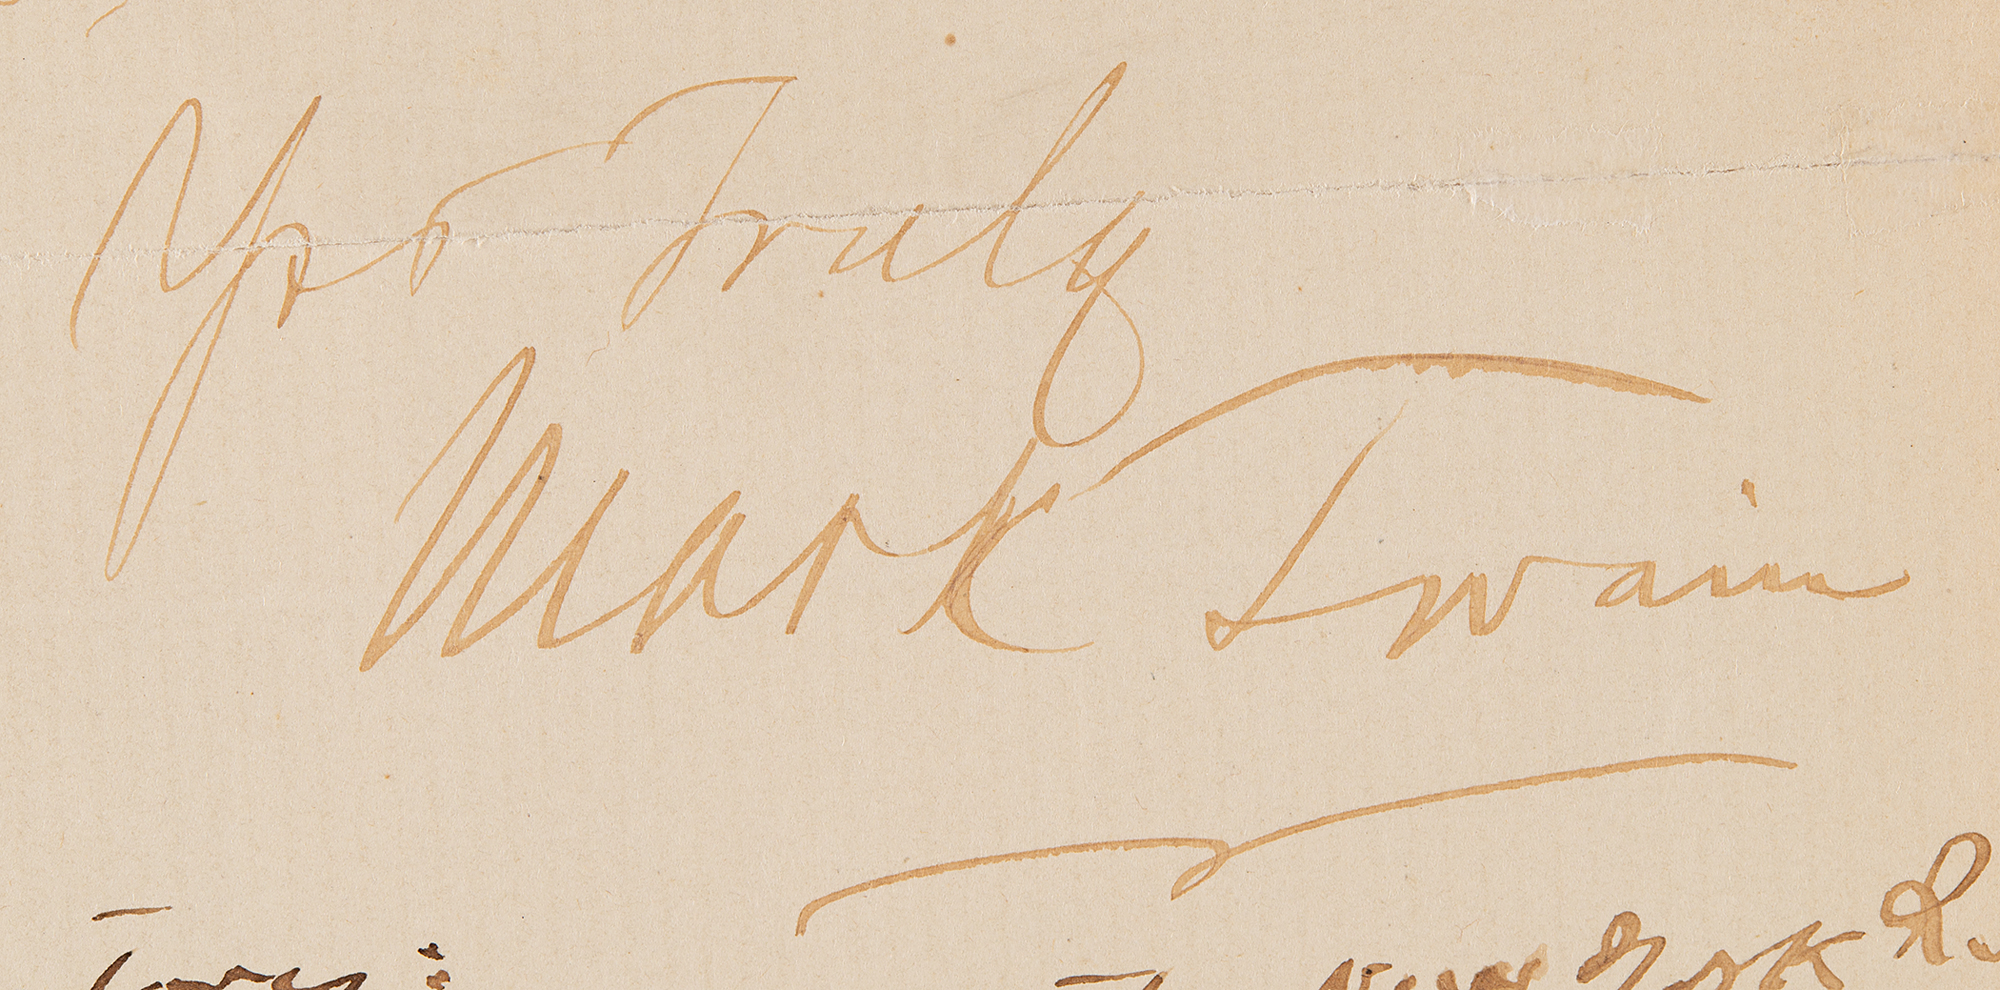 Yrs Truly
Mark Twain
York